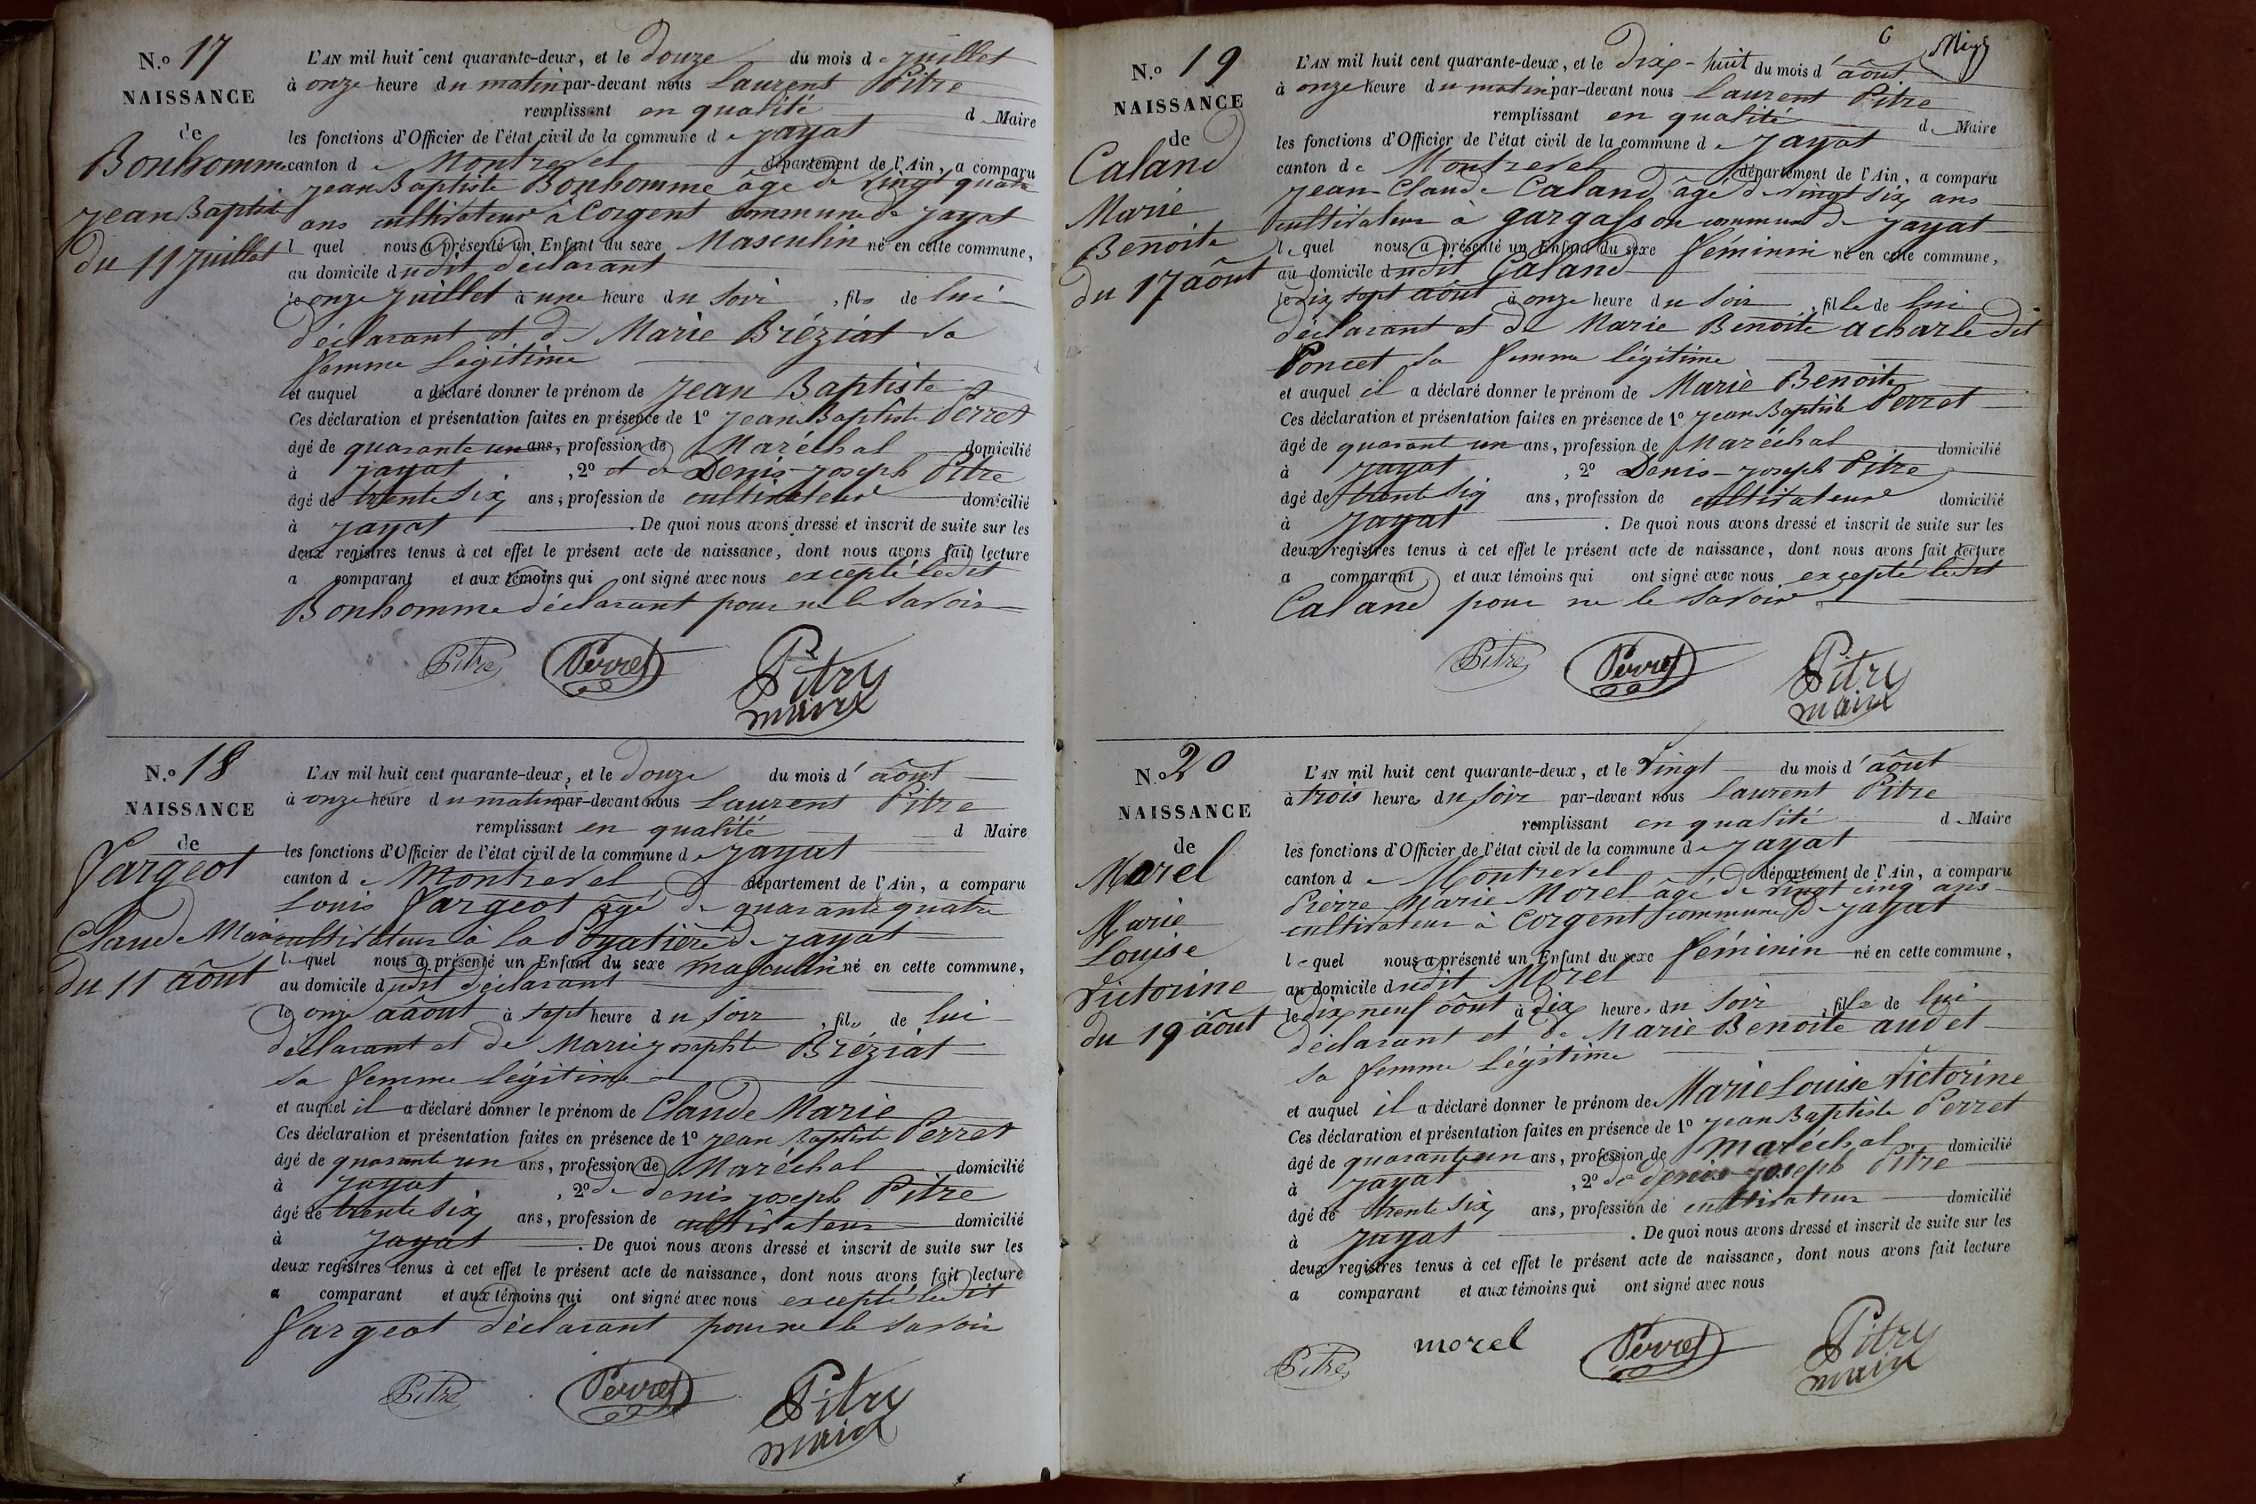 N.o 17
NAISSANCE
de
Bonhomme
Jean Baptiste
du 11 Juillet
L'AN mil huit cent quarante-deux, et le douze du mois de Juillet
à onze heure du matin par-devant nous Laurent Pitre
remplissant en qualité d Maire
les fonctions d'Officier de l'état civil de la commune de Jayat
canton de Montrevel département de l'Ain, a comparu
Jean Baptiste Bonhomme âgé de vingt quatre
ans cultivateur à Corgent commune de Jayat
l quel nous a présenté un Enfant du sexe Masculin né en cette commune,
au domicile dudit déclarant
le onze Juillet à une heure du soir, fils de lui
déclarant et de Marie Bréziat sa
femme légitime
et auquel a déclaré donner le prénom de Jean Baptiste
Ces déclaration et présentation faites en présence de 1o Jean Baptiste Perret
âgé de quarante un ans, profession de Maréchal domicilié
à Jayat, 2o et de Denis Joseph Pitre
âgé de trente six ans, profession de cultivateur domicilié
à Jayat. De quoi nous avons dressé et inscrit de suite sur les
deux registres tenus à cet effet le présent acte de naissance, dont nous avons fait lecture
a comparant et aux témoins qui ont signé avec nous excepté ledit
Bonhomme déclarant pour ne le savoir
Pitre Perret Pitre
maire
N.o 18
NAISSANCE
de
Fargeot
Claude Marie
du 11 août
L'AN mil huit cent quarante-deux, et le douze du mois d'août
à onze heure du matin par-devant nous Laurent Pitre
remplissant en qualité d Maire
les fonctions d'Officier de l'état civil de la commune de Jayat
canton de Montrevel département de l'Ain, a comparu
Louis Fargeot âgé de quarante quatre
cultivateur à la Poyatière de Jayat
le quel nous a présenté un Enfant du sexe masculin né en cette commune,
au domicile dudit déclarant
le onze aâout à sept heure du soir, fils de lui
déclarant et de Marie Josephte Bréziat
sa femme légitime
et auquel il a déclaré donner le prénom de Claude Marie
Ces déclaration et présentation faites en présence de 1o Jean Baptiste Perret
âgé de quarante un ans, profession de Maréchal domicilié
à Jayat, 2o de denis Joseph Pitre
âgé de trente six ans, profession de cultivateur domicilié
à Jayat. De quoi nous avons dressé et inscrit de suite sur les
deux registres tenus à cet effet le présent acte de naissance, dont nous avons fait lecture
a comparant et aux témoins qui ont signé avec nous excepté ledit
Fargeot déclarant pour ne le savoir
Pitre Perret Pitre
maire
6
N.o 19
NAISSANCE
de
Caland
Marie
Benoite
du 17 août
L'AN mil huit cent quarante-deux, et le dix-huit du mois d'août
à onze heure du matin par-devant nous Laurent Pitre
remplissant en qualité de Maire
les fonctions d'Officier de l'état civil de la commune de Jayat
canton de Montrevel département de l'Ain, a comparu
Jean-Claude Caland âgé de vingt six ans
cultivateur à gargasson commune de Jayat
le quel nous a présenté un Enfant du sexe féminin né en cette commune,
au domicile dudit Caland
le dix sept août à onze heure du soir, fille de lui
déclarant et de Marie Benoite acharle dit
Poncet sa femme légitime
et auquel il a déclaré donner le prénom de Marie Benoite
Ces déclaration et présentation faites en présence de 1o Jean Baptiste Perret
âgé de quarante un ans, profession de Maréchal domicilié
à Jayat, 2o Denis-Joseph Pitre
âgé de trente six ans, profession de cultivateur domicilié
à Jayat. De quoi nous avons dressé et inscrit de suite sur les
deux registres tenus à cet effet le présent acte de naissance, dont nous avons fait lecture
a comparant et aux témoins qui ont signé avec nous excepté ledit
Caland pour ne le savoir
Pitre Perret Pitre
maire
N.o 20
NAISSANCE
de
Morel
Marie
Louise
Victorine
du 19 août
L'AN mil huit cent quarante-deux, et le vingt du mois d'août
à trois heures du soir par-devant nous Laurent Pitre
remplissant en qualité de Maire
les fonctions d'Officier de l'état civil de la commune de Jayat
canton de Montrevel département de l'Ain, a comparu
Pierre Marie Morel âgé de vingt cinq ans
cultivateur à Corgent commune de Jayat
le quel nous a présenté un Enfant du sexe féminin né en cette commune,
au domicile dudit Morel
le dix neuf août à dix heures du soir, fille de lui
déclarant et de Marie Benoite audet
sa femme légitime
et auquel il a déclaré donner le prénom de Marie Louise Victorine
Ces déclaration et présentation faites en présence de 1o Jean Baptiste Perret
âgé de quarante un ans, profession de maréchal domicilié
à Jayat, 2o de denis Joseph Pitre
âgé de trente six ans, profession de cultivateur domicilié
à Jayat. De quoi nous avons dressé et inscrit de suite sur les
deux registres tenus à cet effet le présent acte de naissance, dont nous avons fait lecture
a comparant et aux témoins qui ont signé avec nous
Pitre morel Perret Pitre
maire